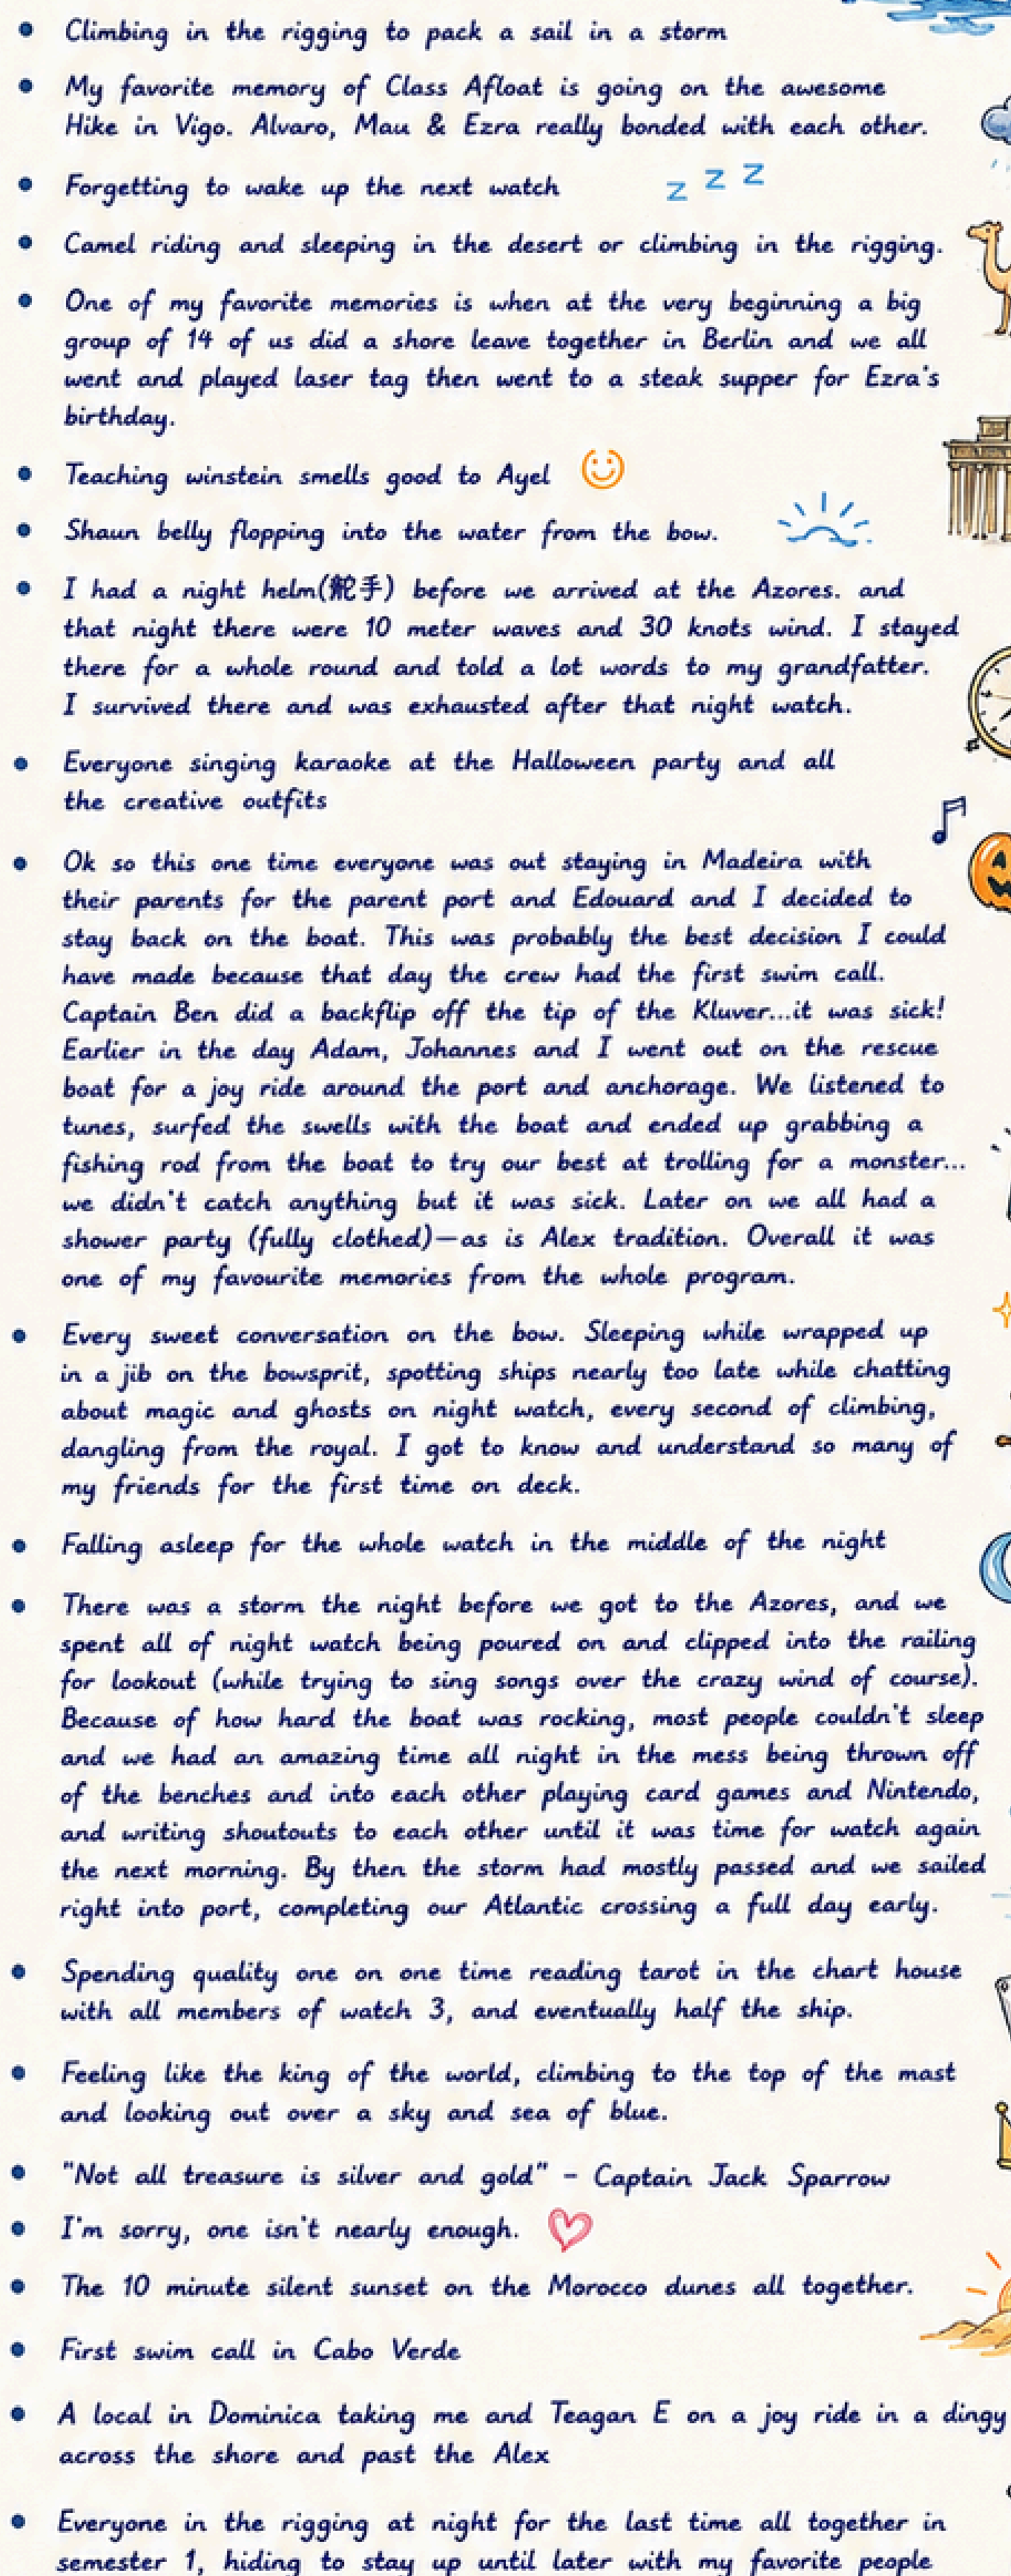 • Climbing in the rigging to pack a sail in a storm
• My favorite memory of Class Afloat is going on the awesome
Hike in Vigo. Alvaro, Mau & Ezra really bonded with each other.
• Forgetting to wake up the next watch z z z
• Camel riding and sleeping in the desert or climbing in the rigging.
• One of my favorite memories is when at the very beginning a big
group of 14 of us did a shore leave together in Berlin and we all
went and played laser tag then went to a steak supper for Ezra's
birthday.
• Teaching winstein smells good to Ayel
• Shaun belly flopping into the water from the bow.
• I had a night helm(舵手) before we arrived at the Azores. and
that night there were 10 meter waves and 30 knots wind. I stayed
there for a whole round and told a lot words to my grandfatter.
I survived there and was exhausted after that night watch.
• Everyone singing karaoke at the Halloween party and all
the creative outfits
• Ok so this one time everyone was out staying in Madeira with
their parents for the parent port and Edouard and I decided to
stay back on the boat. This was probably the best decision I could
have made because that day the crew had the first swim call.
Captain Ben did a backflip off the tip of the Kluver...it was sick!
Earlier in the day Adam, Johannes and I went out on the rescue
boat for a joy ride around the port and anchorage. We listened to
tunes, surfed the swells with the boat and ended up grabbing a
fishing rod from the boat to try our best at trolling for a monster...
we didn't catch anything but it was sick. Later on we all had a
shower party (fully clothed)—as is Alex tradition. Overall it was
one of my favourite memories from the whole program.
• Every sweet conversation on the bow. Sleeping while wrapped up
in a jib on the bowsprit, spotting ships nearly too late while chatting
about magic and ghosts on night watch, every second of climbing,
dangling from the royal. I got to know and understand so many of
my friends for the first time on deck.
• Falling asleep for the whole watch in the middle of the night
• There was a storm the night before we got to the Azores, and we
spent all of night watch being poured on and clipped into the railing
for lookout (while trying to sing songs over the crazy wind of course).
Because of how hard the boat was rocking, most people couldn't sleep
and we had an amazing time all night in the mess being thrown off
of the benches and into each other playing card games and Nintendo,
and writing shoutouts to each other until it was time for watch again
the next morning. By then the storm had mostly passed and we sailed
right into port, completing our Atlantic crossing a full day early.
• Spending quality one on one time reading tarot in the chart house
with all members of watch 3, and eventually half the ship.
• Feeling like the king of the world, climbing to the top of the mast
and looking out over a sky and sea of blue.
• "Not all treasure is silver and gold" - Captain Jack Sparrow
• I'm sorry, one isn't nearly enough.
• The 10 minute silent sunset on the Morocco dunes all together.
• First swim call in Cabo Verde
• A local in Dominica taking me and Teagan E on a joy ride in a dingy
across the shore and past the Alex
• Everyone in the rigging at night for the last time all together in
semester 1, hiding to stay up until later with my favorite people